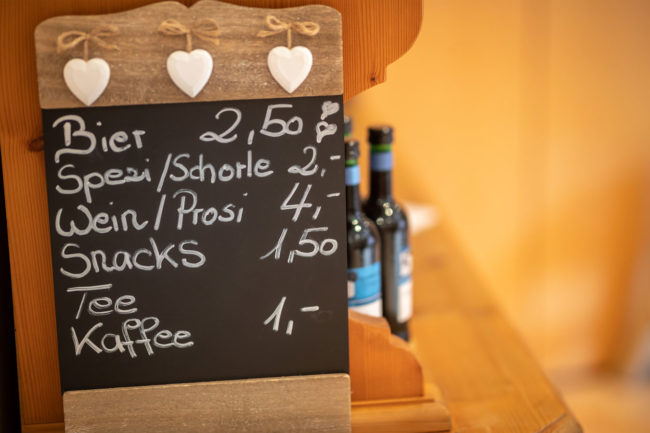 Bier 2,50
Spezi/Schorle 2,-
Wein/Prosi 4,-
Snacks 1,50
Tee
Kaffee 1,-